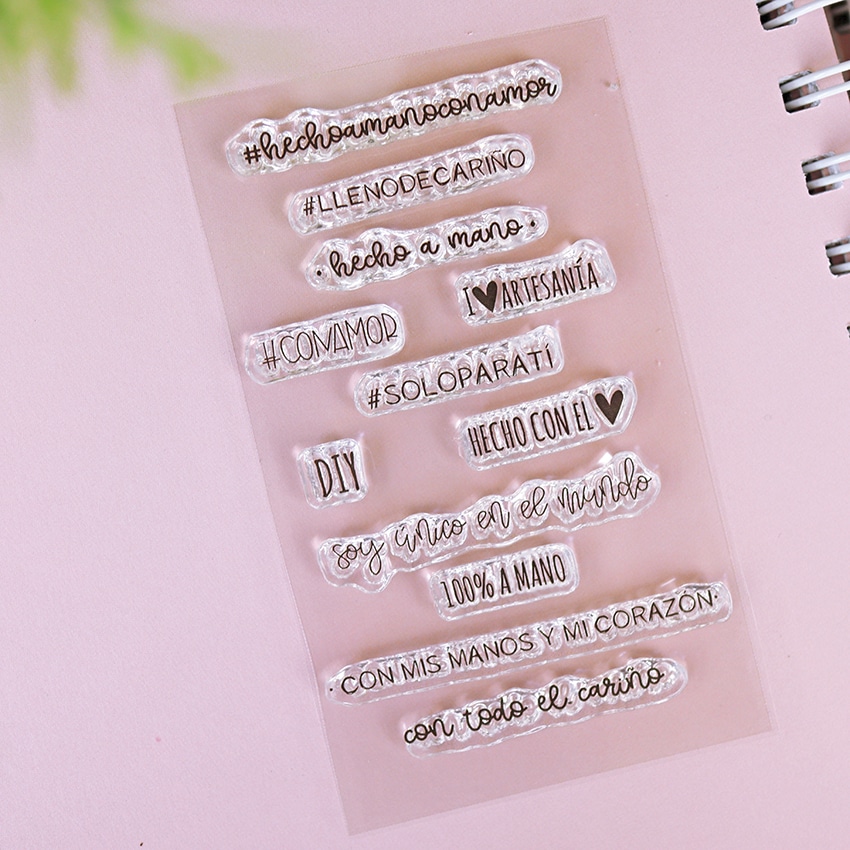 #hechoamanoconamor
#LLENODECARIÑO
· hecho a mano ·
I ♥ ARTESANÍA
#CONAMOR
#SOLOPARATÍ
HECHO CON EL ♥
DIY
soy único en el mundo
100% A MANO
· CON MIS MANOS Y MI CORAZÓN ·
con todo el cariño